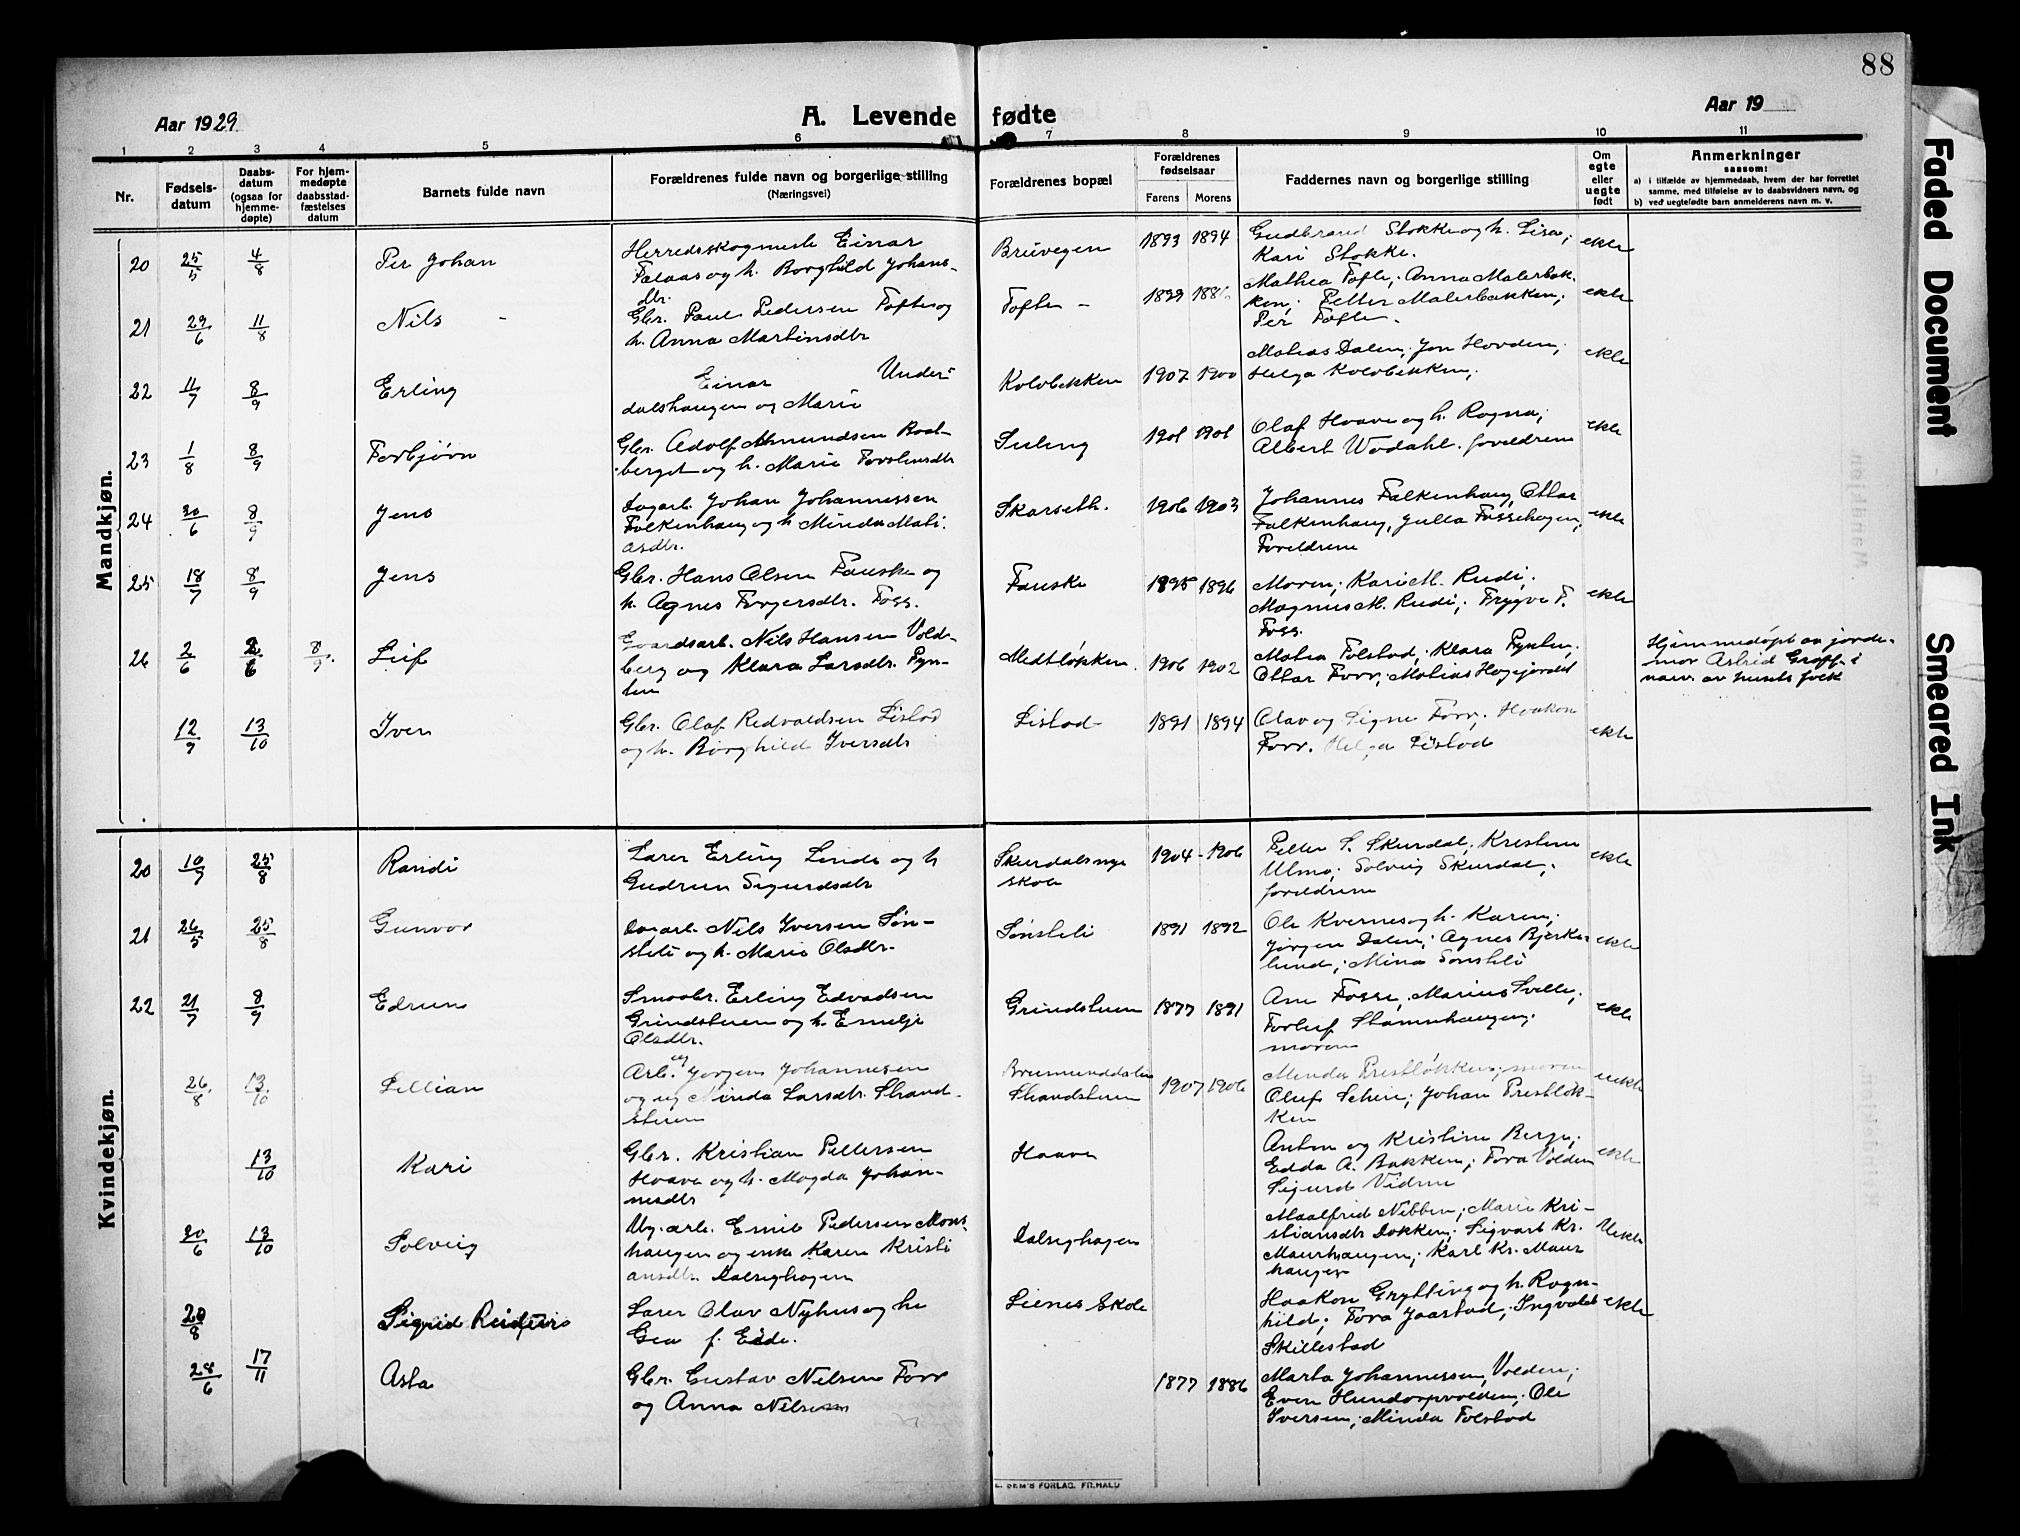 88
Aar 1929
A. Levende fødte
Aar 19
1 2 3 4 5 6 7 8 9 10 11
Nr.
Fødsels-
datum
Daabs-
datum
(ogsaa for
hjemme-
døpte)
For hjem-
medøpte
daabsstad-
fæstelses
datum
Barnets fulde navn
Forældrenes fulde navn og borgerlige stilling
(Næringsvei)
Forældrenes bopæl
Forældrenes
fødselsaar
Farens Morens
Faddernes navn og borgerlige stilling
Om
egte
eller
uegte
født
Anmerkninger
saasom:
a) i tilfælde av hjemmedaab, hvem der har forrettet
samme, med tilføielse av to daabsvidners navn, og
b) ved uegtefødte barn anmelderens navn m. v.
Mandkjøn.
20 25/5 4/8 Per Johan
Herredsskogmest. Einar
Falaas og h. Borghild Johans-
dtr.
Bruvegen 1893 1894
Gudbrand Stokke og h. Lisa;
Kari Stokke.
ekte
21 29/6 11/8 Nils
Gbr. Paul Pedersen Tofte og
h. Anna Martinsdtr
Tofte - 1899
Mathea Tofte; Anna Malerbak-
ken; Petter Malerbakken;
Per Tofte.
ekte
22 11/7 8/9 Erling
Einar Under-
dalshaugen og Marie
Kolobekken 1907 1900
Mathias Dalen; Jon Hovden;
Helga Kolobekken;
ekte
23 1/8 8/9 Torbjørn
Gbr. Adolf Amundsen Baal-
berget og h. Marie Torstensdtr
1901 1901
Olaf Haave og h. Ragna;
Albert Wodahl. foreldrene
ekte
24 30/6 8/9 Jens
Dagarb. Johan Johannessen
Falkenhaug og h. Minda Mathi-
asdtr.
Skarseth. 1906 1903
Johannes Falkenhaug, Ottar
Falkenhaug, Julla Fossehagen,
Foreldrene
ekte
25 18/7 8/9 Jens
Gbr. Hans Olsen Fauske og
h. Agnes Torgersdtr. Foss.
Fauske 1895 1896
Moren; Kari M. Rudi;
Magnus M. Rudi; Trygve T.
Foss.
ekte
26 2/6 2/6 8/9. Leif
Gaardsarb. Nils Hansen Vold-
berg og Klara Larsdtr. Pyn-
ten
Medtløkken. 1906 1902
Mathea Tolstad; Klara Pynten;
Ottar Forr; Mathias Høgegjerdet
Hjemmedøpt av jorde-
mor Astrid Graff. i
nærv. av husets folk
12/9 13/10 Iver
Gbr. Olaf Redvaldsen Listad
og h. Borghild Iversdtr
Listad 1891 1894
Olav og Signe Forr; Haakon
Forr. Helga Listad
ekte
Kvindekjøn.
20 10/7 25/8 Randi
Lærer Erling Linde og h
Gudrun Sigurdsdtr
Skurdals nye
skole
1904 - 1906
Petter S. Skurdal, Kristine
Ulmo; Solveig Skurdal;
foreldrene
ekte
21 26/5 25/8 Gunvor
Dagarb. Nils Iversen Søn-
steli og h. Marie Olsdtr.
Sønsteli 1891 1892
Ole Kvernes og h. Karen;
Jørgen Dalen; Agnes Bjerke-
lund; Mina Sønsteli
ekte
22 21/7 8/9 Edrun
Smaabr. Erling Edvadsen
Grindstuen og h. Emelje
Olsdtr.
Grindstuen 1877 1891
Ane Fosse, Marius Svelle;
Torleif Stamnhaugen;
moren
ekte
26/8 13/10 Lillian
Arb. ug Jørgen Johannesen
og ug Minda Larsdtr. Strand-
stuen
Brumunddalen
Strandstuen
1907 1906
Minda Prestløkken; moren
Oluf Scheie; Johan Prestløk-
ken
uekte
13/10 Kari
Gbr. Kristian Pettersen
Haave og h. Magda Johan-
nesdtr
Haave
Anton og Kristine Berge;
Edda A. Bakken; Tora Volden
Sigurd Vidme
ekte
30/6 13/10 Solveig
Ug. arb. Emil Pedersen Mous-
haugen og enke Karen Kristi
ansdtr. Dalseghagen
Dalseghagen
Maalfrid Nibben; Marie Kri-
stiansdtr Dokken; Sigvart Kr.
Maurhaugen; Karl Kr. Maur
haugen
Uekte
20/8 Sigrid
Lærer Olav Nyhus og h
Gea f. Eide.
Lienes Skole
Haakon Grytting og h. Ragn-
hild; Tora Jaarstad; Ingvald
Skillestad
ekte
28/6 17/11 Asta
Gbr. Gustav Nilsen Forr
og Anna Nilsen
1877 1886
Marta Johannessen Volden;
Even Hundorpvolden; Ole
Iversen; Minda Tolstad
E. SEM'S FORLAG, FR.HALD
Faded Document
Smeared Ink